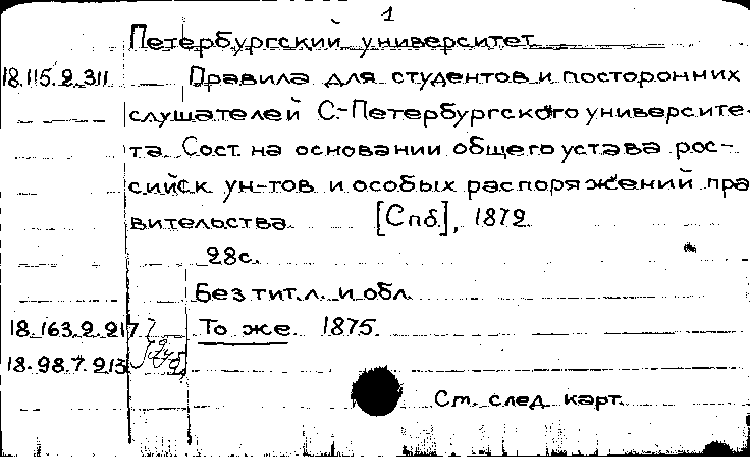 1
Петербургский университет
18.115.2.311 Правила для студентов и посторонних
слушателей С.-Петербургского университе-
та. Сост. на основании общего устава рос-
сийск. ун-тов и особых распоряжений пра
вительства [Спб], 1872.
28с.
Без тит.л. и обл.
18.163.2.217 То же. 1875.
18.98.7.213
Ст. след. карт.